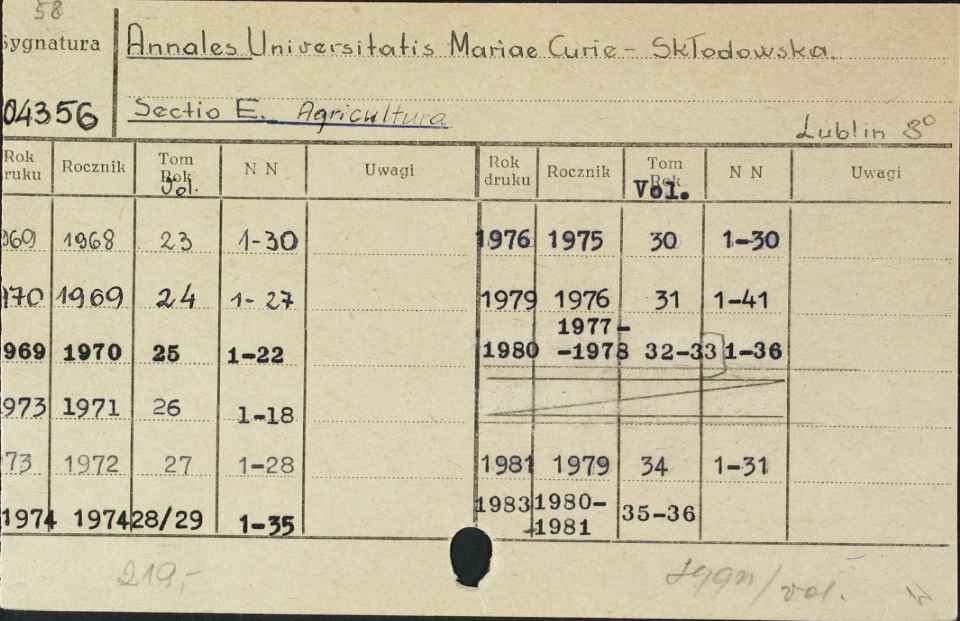 58
Sygnatura
Annales Universitatis Mariae Curie - Skłodowska.
04356
Sectio E. Agricultura
Lublin 8°
Rok druku Rocznik Tom Rok Vol. N N Uwagi Rok druku Rocznik Tom Rok Vol. N N Uwagi
969 1968 23 1-30
970 1969 24 1-27
969 1970 25 1-22
973 1971 26 1-18
73 1972 27 1-28
1974 1974 28/29 1-35
1976 1975 30 1-30
1979 1976 31 1-41
1980 1977--1978 32-33 1-36
1981 1979 34 1-31
1983 1980-1981 35-36
219,-
sygn/vol.